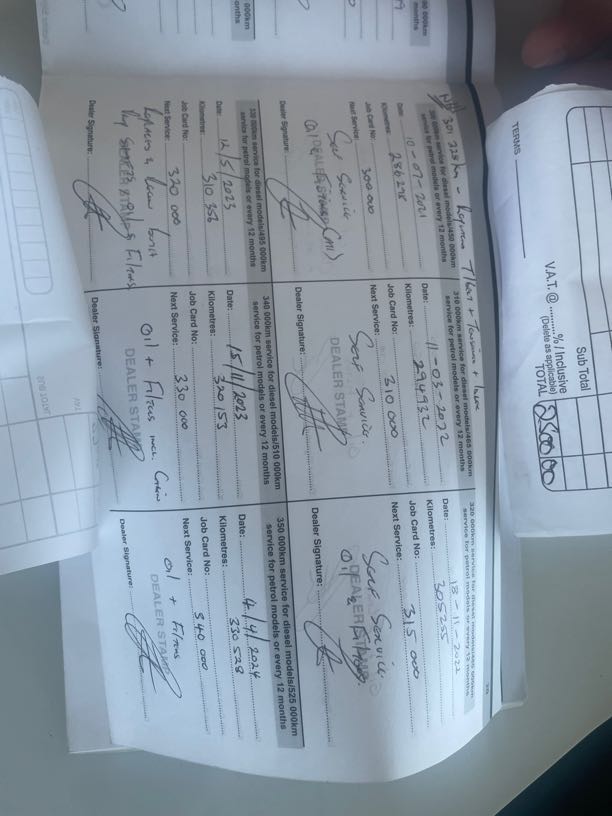 TERMS
Sub Total
V.A.T. @ ............% / Inclusive
(Delete as applicable)
TOTAL
301 228 km - Tibet + + 
300 000km service for diesel models/450 000km
service for petrol models or every 12 months
Date: 10-07-2021
Kilometres: 286 298
Job Card No:
Next Service: 300 000
Self Service
DEALER STAMP
Dealer Signature:
310 000km service for diesel models/465 000km
service for petrol models or every 12 months
Date: 11-03-2022
Kilometres: 294932
Job Card No:
Next Service: 310 000
Self Service
DEALER STAMP
Dealer Signature:
320 000km service for diesel models/480 000km
service for petrol models or every 12 months
Date: 13-11-2022
Kilometres: 305255
Job Card No:
Next Service: 315 000
Self Service
Oil & Filters
DEALER STAMP
Dealer Signature:
330 000km service for diesel models/495 000km
service for petrol models or every 12 months
Date: 12/5/2023
Kilometres: 310 356
Job Card No:
Next Service: 320 000
DEALER STAMP
Filters
Dealer Signature:
340 000km service for diesel models/510 000km
service for petrol models or every 12 months
Date: 15/11/2023
Kilometres: 320 153
Job Card No:
Next Service: 330 000
Oil + Filters incl Cabin
DEALER STAMP
Dealer Signature:
350 000km service for diesel models/525 000km
service for petrol models or every 12 months
Date: 4/4/2024
Kilometres: 330 528
Job Card No:
Next Service: 340 000
Oil + Filters
DEALER STAMP
Dealer Signature: